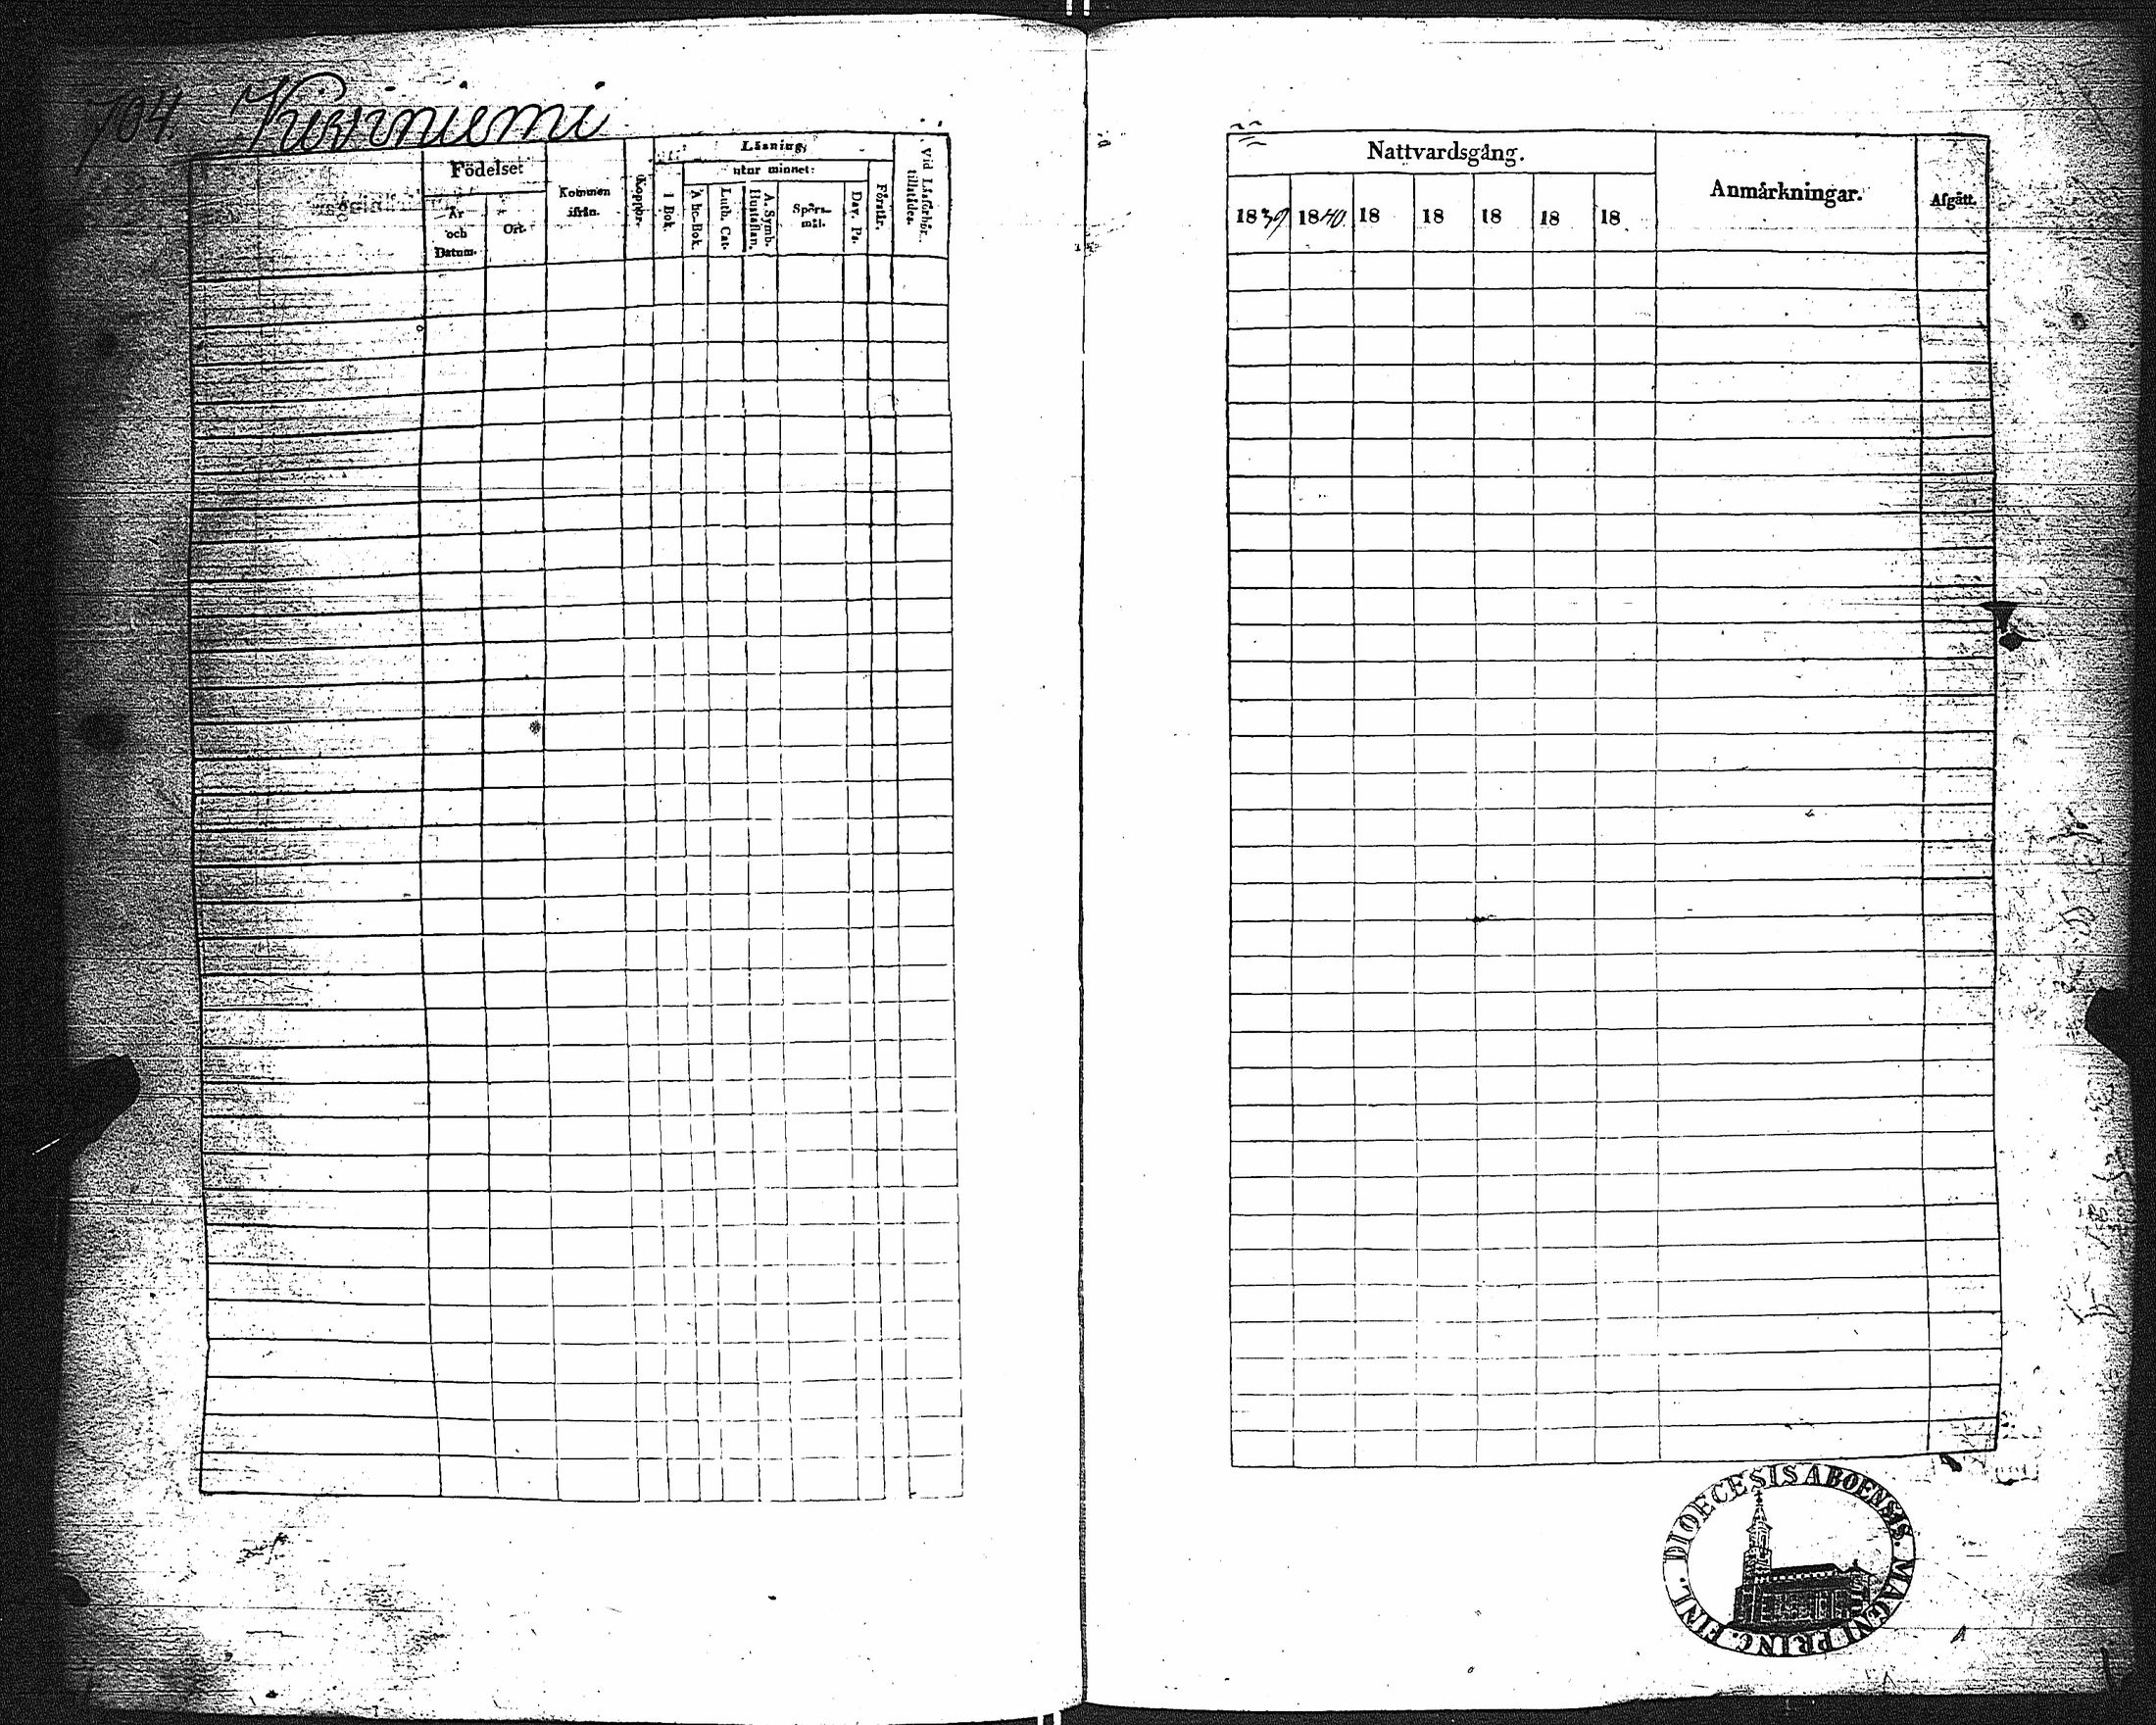 704. Kiviniemi
Födelset
År
och
Datum.
Ort.
Kommen
ifrån.
Koppor.
Läsning,
utur minnet:
I Bok.
A bc-Bok.
Luth. Cat.
A. Symb.
Hustaflan.
Spörs-
mål.
Dav. Ps.
Förstår.
Vid Läsförhör
tillstädes.
Nattvardsgång.
1839 1840. 18 18 18 18 18
Anmårkningar.
Afgått.
DIOECESIS ABOENSIS. MAGNI PRINC. FINL.